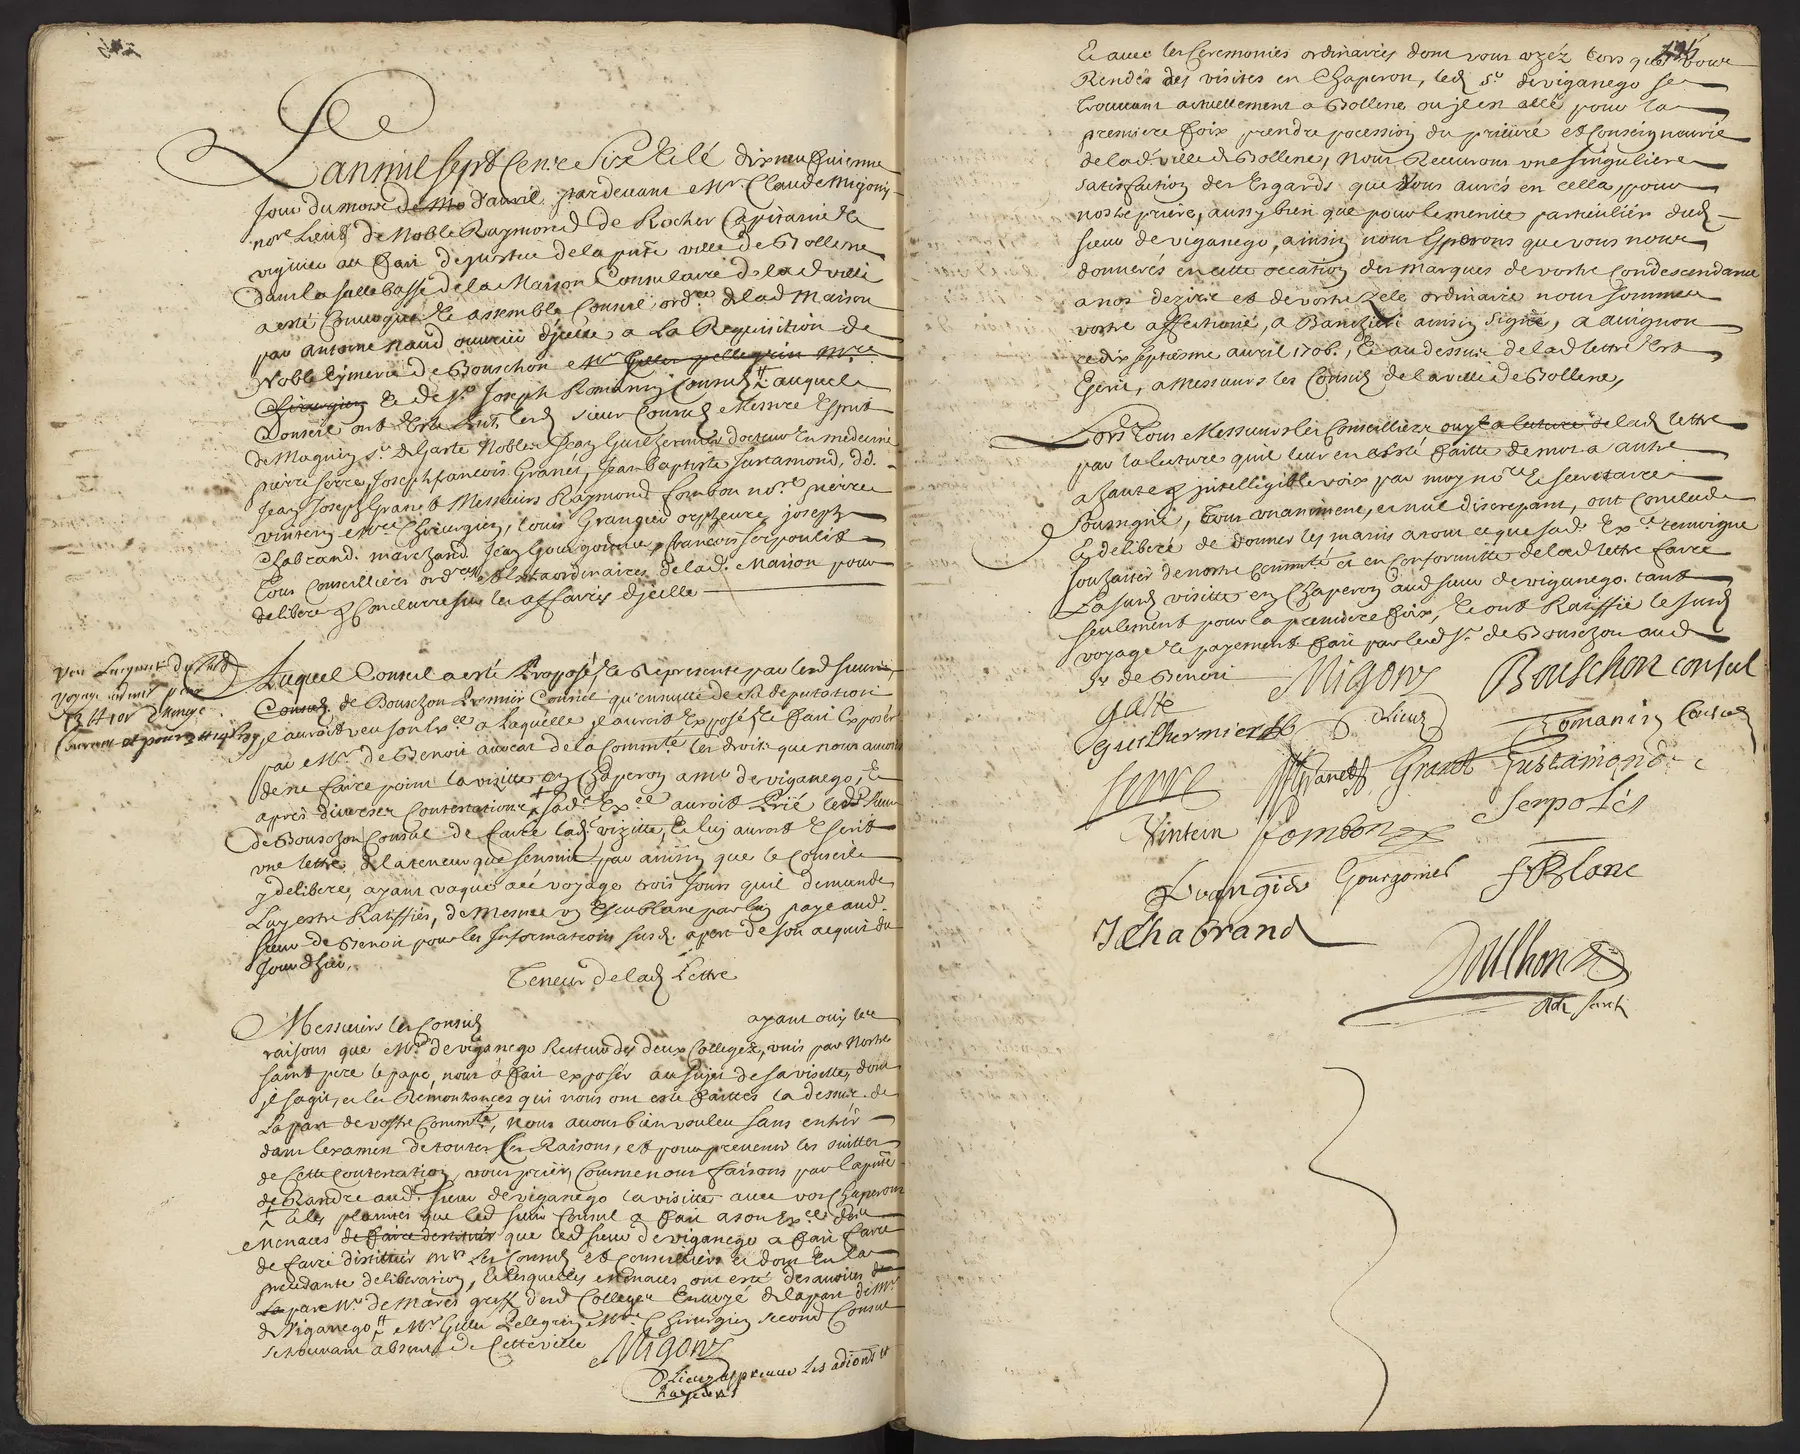 L'an mil sept Cens Six & le dixneufvieme
Jour du mois de Mo d'avril pardevant Mr. Claude Migony
nore. Lieut. de Noble Raymond de Rocher Capitaine &
viguier au fait de justice de la pnte ville de Bollene
Dans la salle basse de la Maison Consulaire de lad. ville
a esté Convoqué & assemblé Conseil ordre. de lad. Maison
par antoine naud ouvrier d'jcelle a La Requisition de
Noble Eymeric de Bouschon Mr Gilles pellegrin Mre
Chirurgien & de sr. Joseph Romaniny Consuls auquel
Conseil ont Esté lesd. sieurs Consuls Messire Esprit
de Maguin sr. de Gaste Nobles Jean Guilhermier docteur En medecine
pierre serre, Joseph françois Granet, Jean Baptiste Justamond, dd.
Jean Joseph Granet Messieurs Raymond Combon nore. pierre
vintein Mre Chirurgien, Louis Grangier orpheure, joseph
Chabrand marchand, Jean Gourgonier, françois serpoulet
Tous Conseilliers ordres. & Extraordinaires de lad. Maison pour
deliberer & Conclurre sur les affaires d'jcelle
Auquel Conseil a esté Proposé & Represente par led. sieur
Consul de Bouschon Premier Consul qu'ensuitte de sa deputation
jl auroit veu son Exce. a Laquelle jl auroit Exposé, & fait Exposer
par Mr. de Benoit avocat de la Commté. les droits que nous avons
de ne faire point la visitte en Chaperon a Mr de viganego, Et
apres diverses Contestations + sad. Exce auroit Prié led. sieur
de Bouschon Consul de faire lad. vizitte, & luy auroit Escrit
une lettre de la teneur que sensuit, par ainsin que le Conseil
y delibere, ayant vaqué aud. voyage trois Jours quil demande
Luy estre Ratiffiés, de Mesme un Escu blanc par luy payé aud.
sieur de Benoit pour les Informations susd. apert de son acquit du
Jour d'hier.
Teneur de lad. Lettre
Messieurs les Consuls ayant ouy les
raisons que Mr. de viganego Recteur des deux Colleges, unis par Nostre
saint pere le pape, nous a fait exposer au sujet de sa visitte, dont
jl sagit, et les Remontrances qui nous ont esté faittes la dessus de
La part de vostre Commté, nous avons bien voulleu sans entrer
dans lexamen de toutes ses Raisons, et pour prevenir les suittes
de Cette Contestation, vous prier, Comme nous faisons par la pnte
de Randre aud. sieur de viganego la visitte avec vos Chaperons
+ & les plaintes que led. sieur Consul a fait a son Exce des
Menaces de faire destituer que led. sieur de viganego a fait faire
de faire distituer Mrs Les Consuls et Conseilliers et dont En la
precedante deliberation, & lesquelles Menaces ont esté desavoués
La part Mr de Marés greff. desd. Colleges Envoyé de la part de Mr
de Viganego Mr Gilles Pelegrin Mre. Chirurgien second Consul
se trouvant absent de Cette ville
Migony
Lieut. appreuve les adions et
Rayeures
Et avec les Ceremonies ordinaires dont vous uzéz Lors que vous
Rendés des visites en Chaperon, led. sr. de viganego se
trouvant actuellement a Bollene ou jl est allé pour la
premiere foix prendre pocession du prieuré et Conseigneurie
de lad. ville de Bollene, Nous Recevrons une singuliere
satisfaction des Esgards que vous aurés en cella, pour
nostre priere, aussy bien que pour le merite particulier dud.
sieur de viganego, ainsin nous Esperons que vous nous
donnerés en cette occation des marques de vostre Condescendance
a nos dezirs et de vostre zele ordinaire nous sommes
vostre affectioné, a Banchieri ainsin signé, a avignon
ce dix septiesme avril 1706, & au dessus de lad. lettre Est
Escrit, a Messieurs les Consuls de la ville de Bollene,
Lors Tous Messieurs les Conseilliers ouy la lecture de lad. lettre
par la lecture quil leur en a esté faitte de mot a autre
a haute & jntelligible voix par moy nore. & secretaire
soussigné, Tous unanimene, et nul discrepant, ont Conclud
& deliberé de donner les mains a tout ce que sad. Exce. temoigne
souhaitter de nostre Commté et en Conformitté de lad. lettre faire
La susd. visitte en Chaperon aud. sieur de viganego tant
seulement pour la premiere foix, & ont Ratiffié le susd.
voyage & payement fait par led. sr. de Bouschon aud.
sr de Benoit
Migony
Bouschon consul
Gaste
Lieut.
Romaniny Consul
Guilhermier
Serre
Granet
Granet
Justamond
Serpolet
Vintein
Combon
Grangier
Gourgonier
f Blanc
J Chabrand